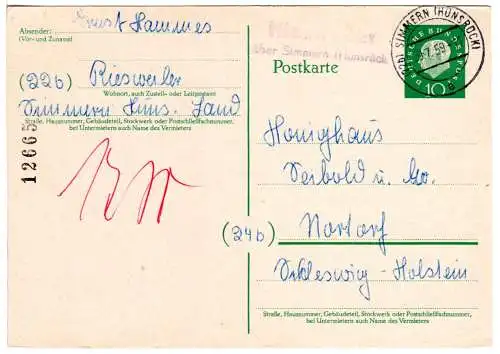 Absender:
(Vor- und Zuname)
Ernst Hammes
(22b) Riesweiler
Wohnort, auch Zustell- oder Leitpostamt
Simmern Huns. Land
Straße, Hausnummer, Gebäudeteil, Stockwerk oder Postschließfachnummer,
bei Untermietern auch Name des Vermieters
12665
über Simmern (Hunsrück)
Postkarte
SIMMERN (HUNSRÜCK)
DEUTSCHE BUNDESPOST
10
Honighaus
Seibold u. Co.
(24b)
Nortorf
Schleswig-Holstein
Straße, Hausnummer, Gebäudeteil, Stockwerk oder Postschließfachnummer,
bei Untermietern auch Name des Vermieters